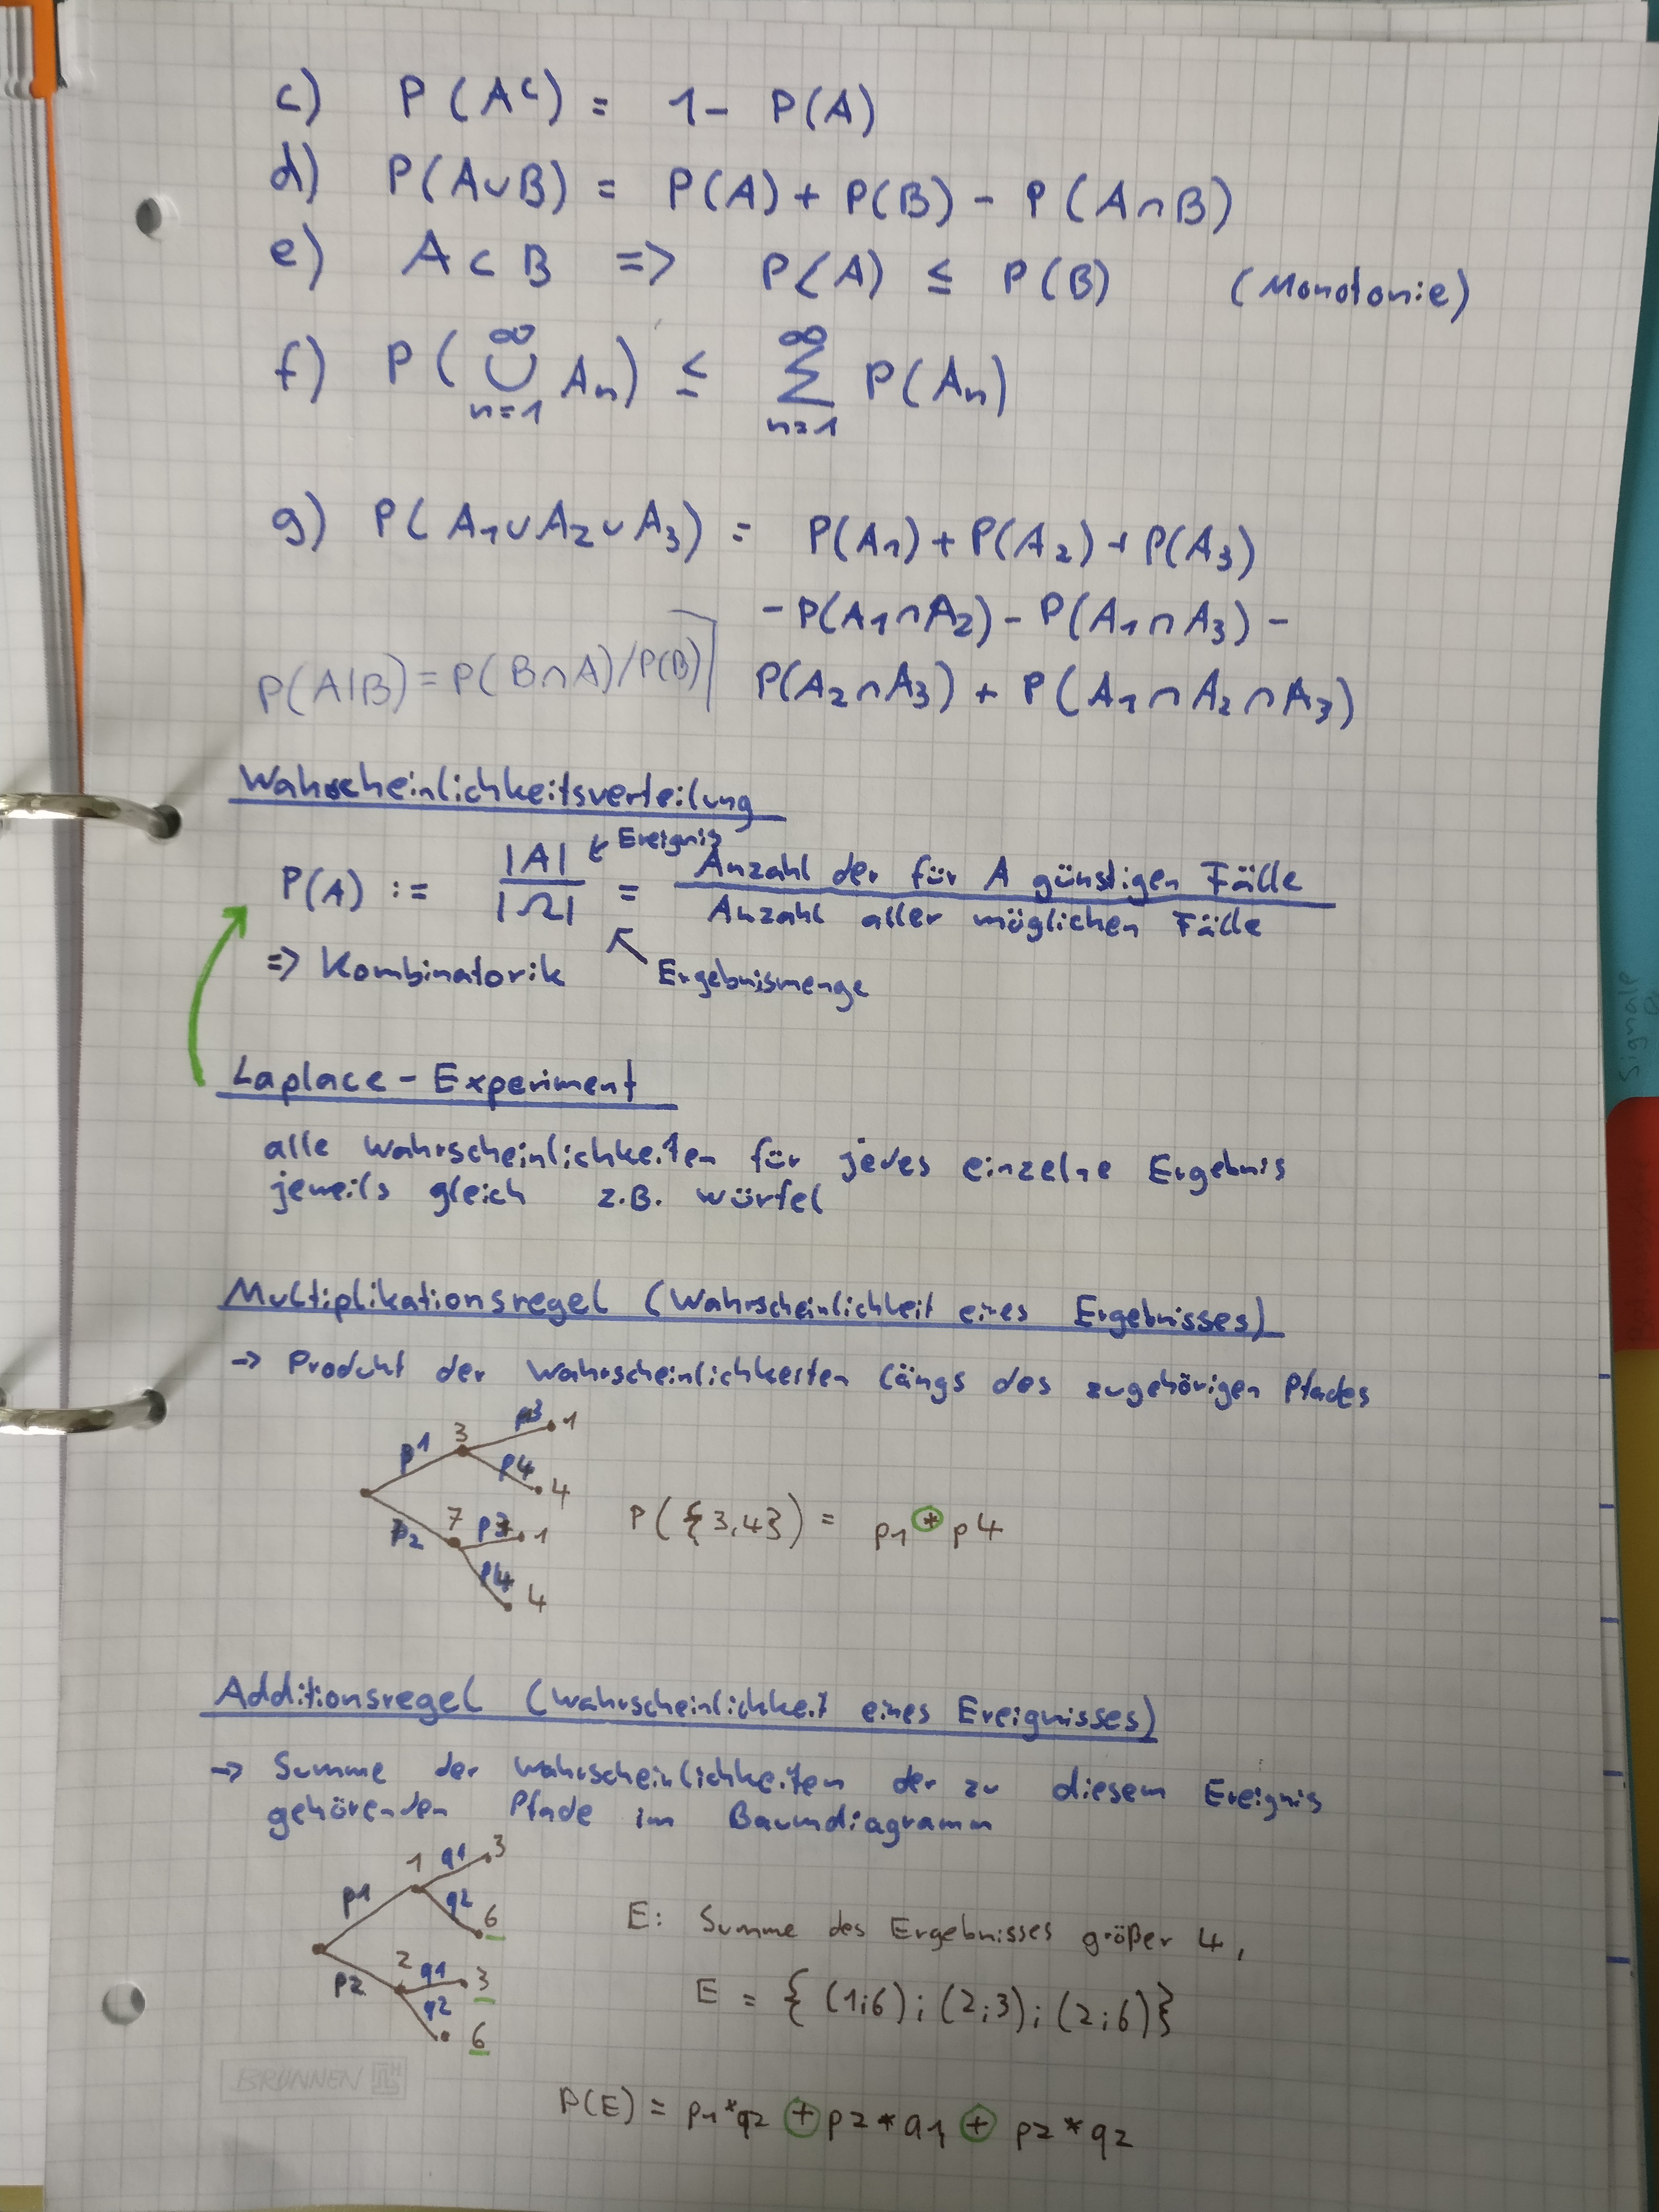 c) P(Aᶜ) = 1 - P(A)
d) P(A∪B) = P(A) + P(B) - P(A∩B)
e) A ⊂ B => P(A) ≤ P(B) (Monotonie)
f) P( ∞ ∪ n=1 An) ≤ ∞ Σ n=1 P(An)
g) P(A₁∪A₂∪A₃) = P(A₁) + P(A₂) + P(A₃)
-P(A₁∩A₂) - P(A₁∩A₃) -
P(A|B) = P(B∩A)/P(B) P(A₂∩A₃) + P(A₁∩A₂∩A₃)
Wahrscheinlichkeitsverteilung
Ereignis
P(A) := |A| / |Ω| = Anzahl der für A günstigen Fälle / Anzahl aller möglichen Fälle
=> Kombinatorik Ergebnismenge
Laplace - Experiment
alle Wahrscheinlichkeiten für jedes einzelne Ergebnis
jeweils gleich z.B. würfel
Multiplikationsregel (Wahrscheinlichkeit eines Ergebnisses)
-> Produkt der Wahrscheinlichkeiten längs des zugehörigen Pfades
p1 3 p3 1
p4 4
p2 7 p3 1
p4 4
P({3,4}) = p1 * p4
Additionsregel (Wahrscheinlichkeit eines Ereignisses)
-> Summe der Wahrscheinlichkeiten der zu diesem Ereignis
gehörenden Pfade im Baumdiagramm
p1 1 q1 3
q2 6
p2 2 q1 3
q2 6
E: Summe des Ergebnisses größer 4,
E = { (1;6) ; (2;3) ; (2;6) }
BRUNNEN
P(E) = p1*q2 + p2*q1 + p2*q2
Signale